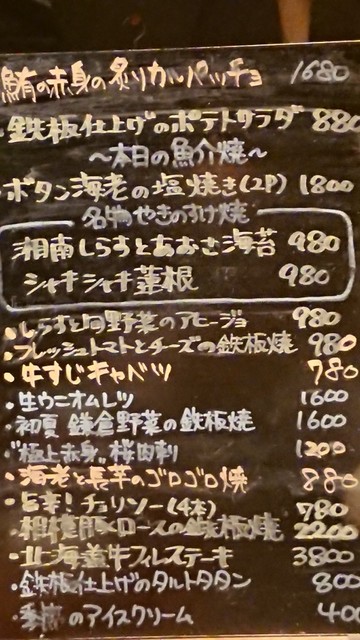 鮪の赤身の炙りカルパッチョ 1680
鉄板仕上げのポテトサラダ 880
〜本日の魚介焼〜
・ボタン海老の塩焼き(2P) 1800
名物やきのすけ焼
湘南しらすとあおさ海苔 980
シャキシャキ蓮根 980
・しらすと旬野菜のアヒージョ 980
・フレッシュトマトとチーズの鉄板焼 980
・牛すじキャベツ 780
・生ウニオムレツ 1600
・初夏 鎌倉野菜の鉄板焼 1600
・極上赤身 桜肉刺 1200
・海老と長芋のゴロゴロ焼 880
・旨辛!チョリソー(4本) 780
・相模豚ロースの鉄板焼 2200
・北海道牛フィレステーキ 3800
・鉄板仕上げのタルトタタン 800
・季節のアイスクリーム 40